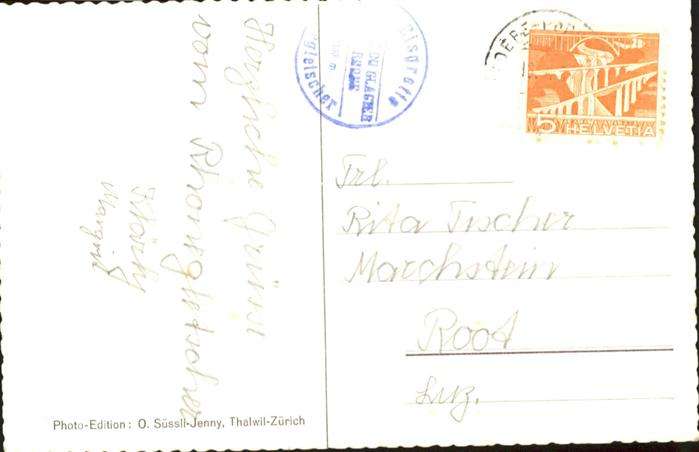 Herzliche Grüsse
vom Rhonegletscher
Margrit
Eisgrotte
DU GLACIER
gletscher
5 HELVETIA
Frl.
Rita Fischer
Marchstein
Root
Luz.
Photo-Edition: O. Süssli-Jenny, Thalwil-Zürich